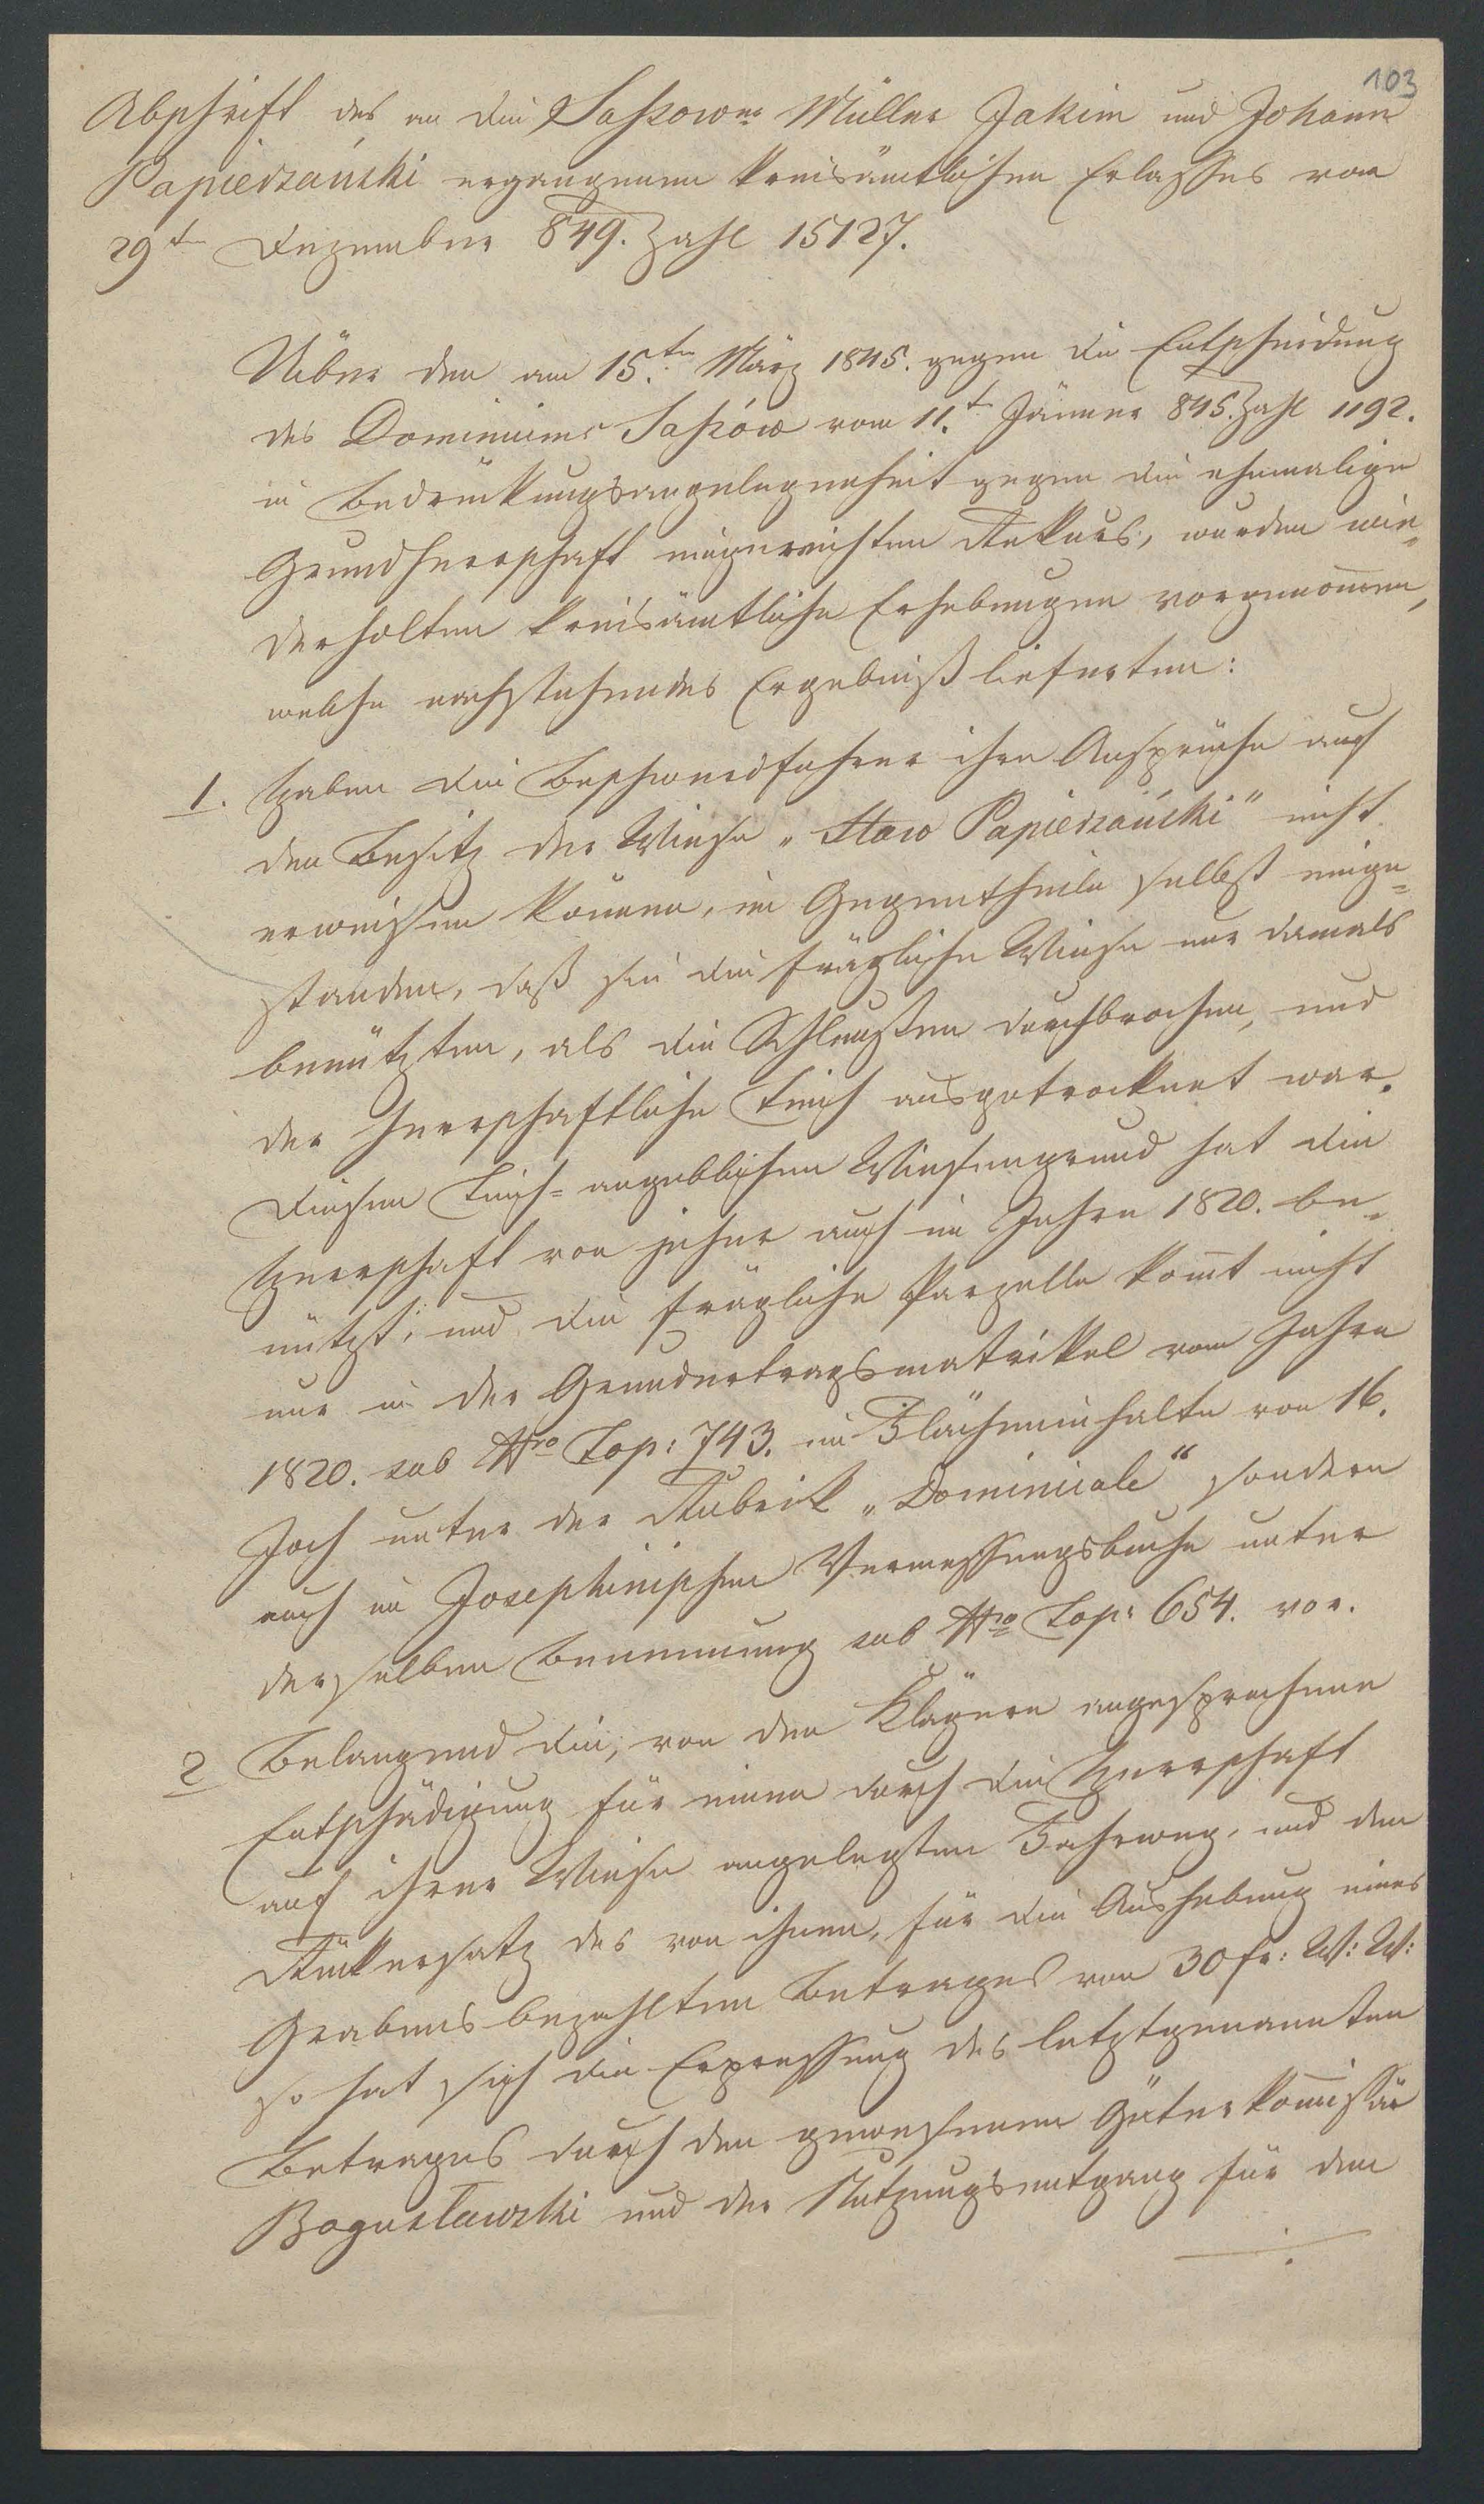 103
Abschrift des an die Saßower Müller Jakim und Johann
Papierzański ergangenen kreisämtlichen Erlaßes vom
29t Dezember 849. Zahl 15127.
Uiber den am 15.ten März 1845. gegen die Entscheidung
des Dominiums Saßów vom 11.t Jänner 845. Zahl 1192.
in Bedrückungsangelegenheit gegen die ehemalige
Grundherrschaft eingereichten Rekurs, wurden wie=
derholten kreisämtliche Erhebungen vorgenom̄en,
welche nachstehendes Ergebniß lieferten:
1. Haben die Beschwerdeführer ihre Ansprüche auf
den Besitz der Wiese „Staw Papierzański" nicht
erweisen können, im Gegentheile selbst einge=
standen, daß sie die fragliche Wiese nur damals
benützten, als die Schleußen durchbrochen, und
der herrschaftliche Teich ausgetrocknet war.
Diesen Teich= angeblichen Wiesengrund hat die
Herrschaft von jeher auch im Jahre 1820. be=
nützt, und die fragliche Parzelle kom̄t nicht
nur in der Grundertragsmatrikel vom Jahre
1820. sub Nro Top: 743. im Flächeninhalte von 16.
Joch unter der Rubrik „Dominicale" sondern
auch im Josephinischen Vermessungsbuche unter
derselben Benennung sub Nro Top: 654. vor.
2 Belangend die, von den Klägern angesprochene
Entschädigung für einen durch die Herrschaft
auf ihrer Wiese angelegten Fahrweg, und den
Rückersatz des von ihnen, für die Aushebung eines
Grabens bezahlten Betrages von 30 fr: W: W:
so hat sich die Erpressung des letztgenannten
Betrages durch den gewesenen Güterkom̄issär
Bogusławski und der Nutzungsentgang für den